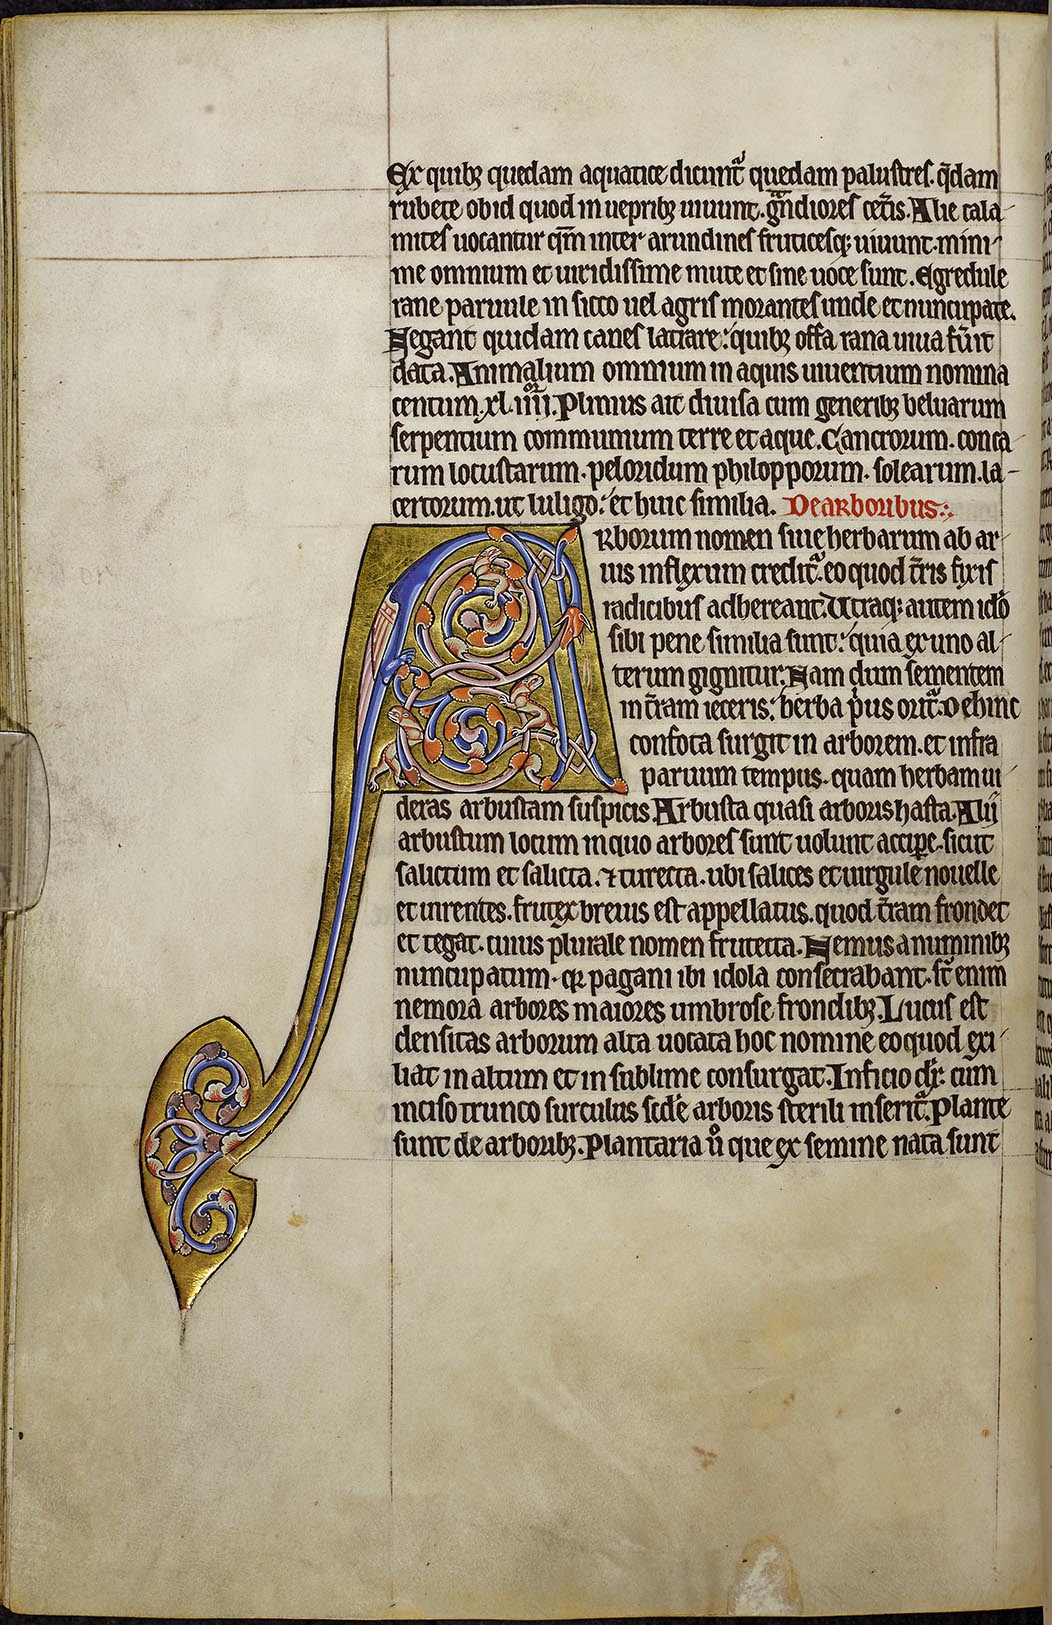 Ex quibꝫ quedam aquatice dicunt̉ quedam palustres. q̄dam
rubete ob id quod in uepribꝫ uiuunt. gͣndiores cet̄is. Alie cala-
mites uocantur qm̄ inter arundines fruticesqꝫ uiuunt. mini-
me omnium et uiridissime mute et sine uoce sunt. Egredule
rane paruule in sicco uel agris morantes unde et nuncupate.
Negant quidam canes latrare: quibꝫ offa rana uiua fūit
data. Animalium omnium in aquis uiuentium nomina
centum. xl. iiijͦʳ. Plinius ait diuisa cum generibꝫ beluarum
serpentium communium terre et aque. Cancrorum. conca-
rum locustarum. peloridum philopporum. solearum. la-
certorum. ut luligo: et huic similia. De arboribus:
Arborum nomen siue herbarum ab ar-
uis inflexum credit̉. eo quod t̄ris fixis
radicibus adhereant. Utraqꝫ autem idō
sibi pene similia sunt: quia ex uno al-
terum gignitur. Nam dum sementem
in t̄ram ieceris: herba p̄us orit̉. dehinc
confota surgit in arborem. et infra
paruum tempus. quam herbam ui-
deras arbustam suspicis. Arbusta quasi arboris hasta. Alij
arbustum locum in quo arbores sunt uolunt accipe. sicut
salictum et salicta. ⁊ turecta. ubi salices et uirgule nouelle
et uirentes. frutex breuis est appellatus. quod t̄ram frondet
et tegat. cuius plurale nomen frutecta. Nemus a numinibꝫ
nuncupatum. qꝛ pagani ibi idola consecrabant. st̄ enim
nemora arbores maiores umbrose frondibꝫ. Lucus est
densitas arborum alta uocata hoc nomine eo quod exi-
liat in altum et in sublime consurgat. Inficio dr̄. cum
inciso trunco surculus fede arboris sterili inserit̉. Plante
sunt de arboribꝫ. Plantaria ů que ex semine nata sunt